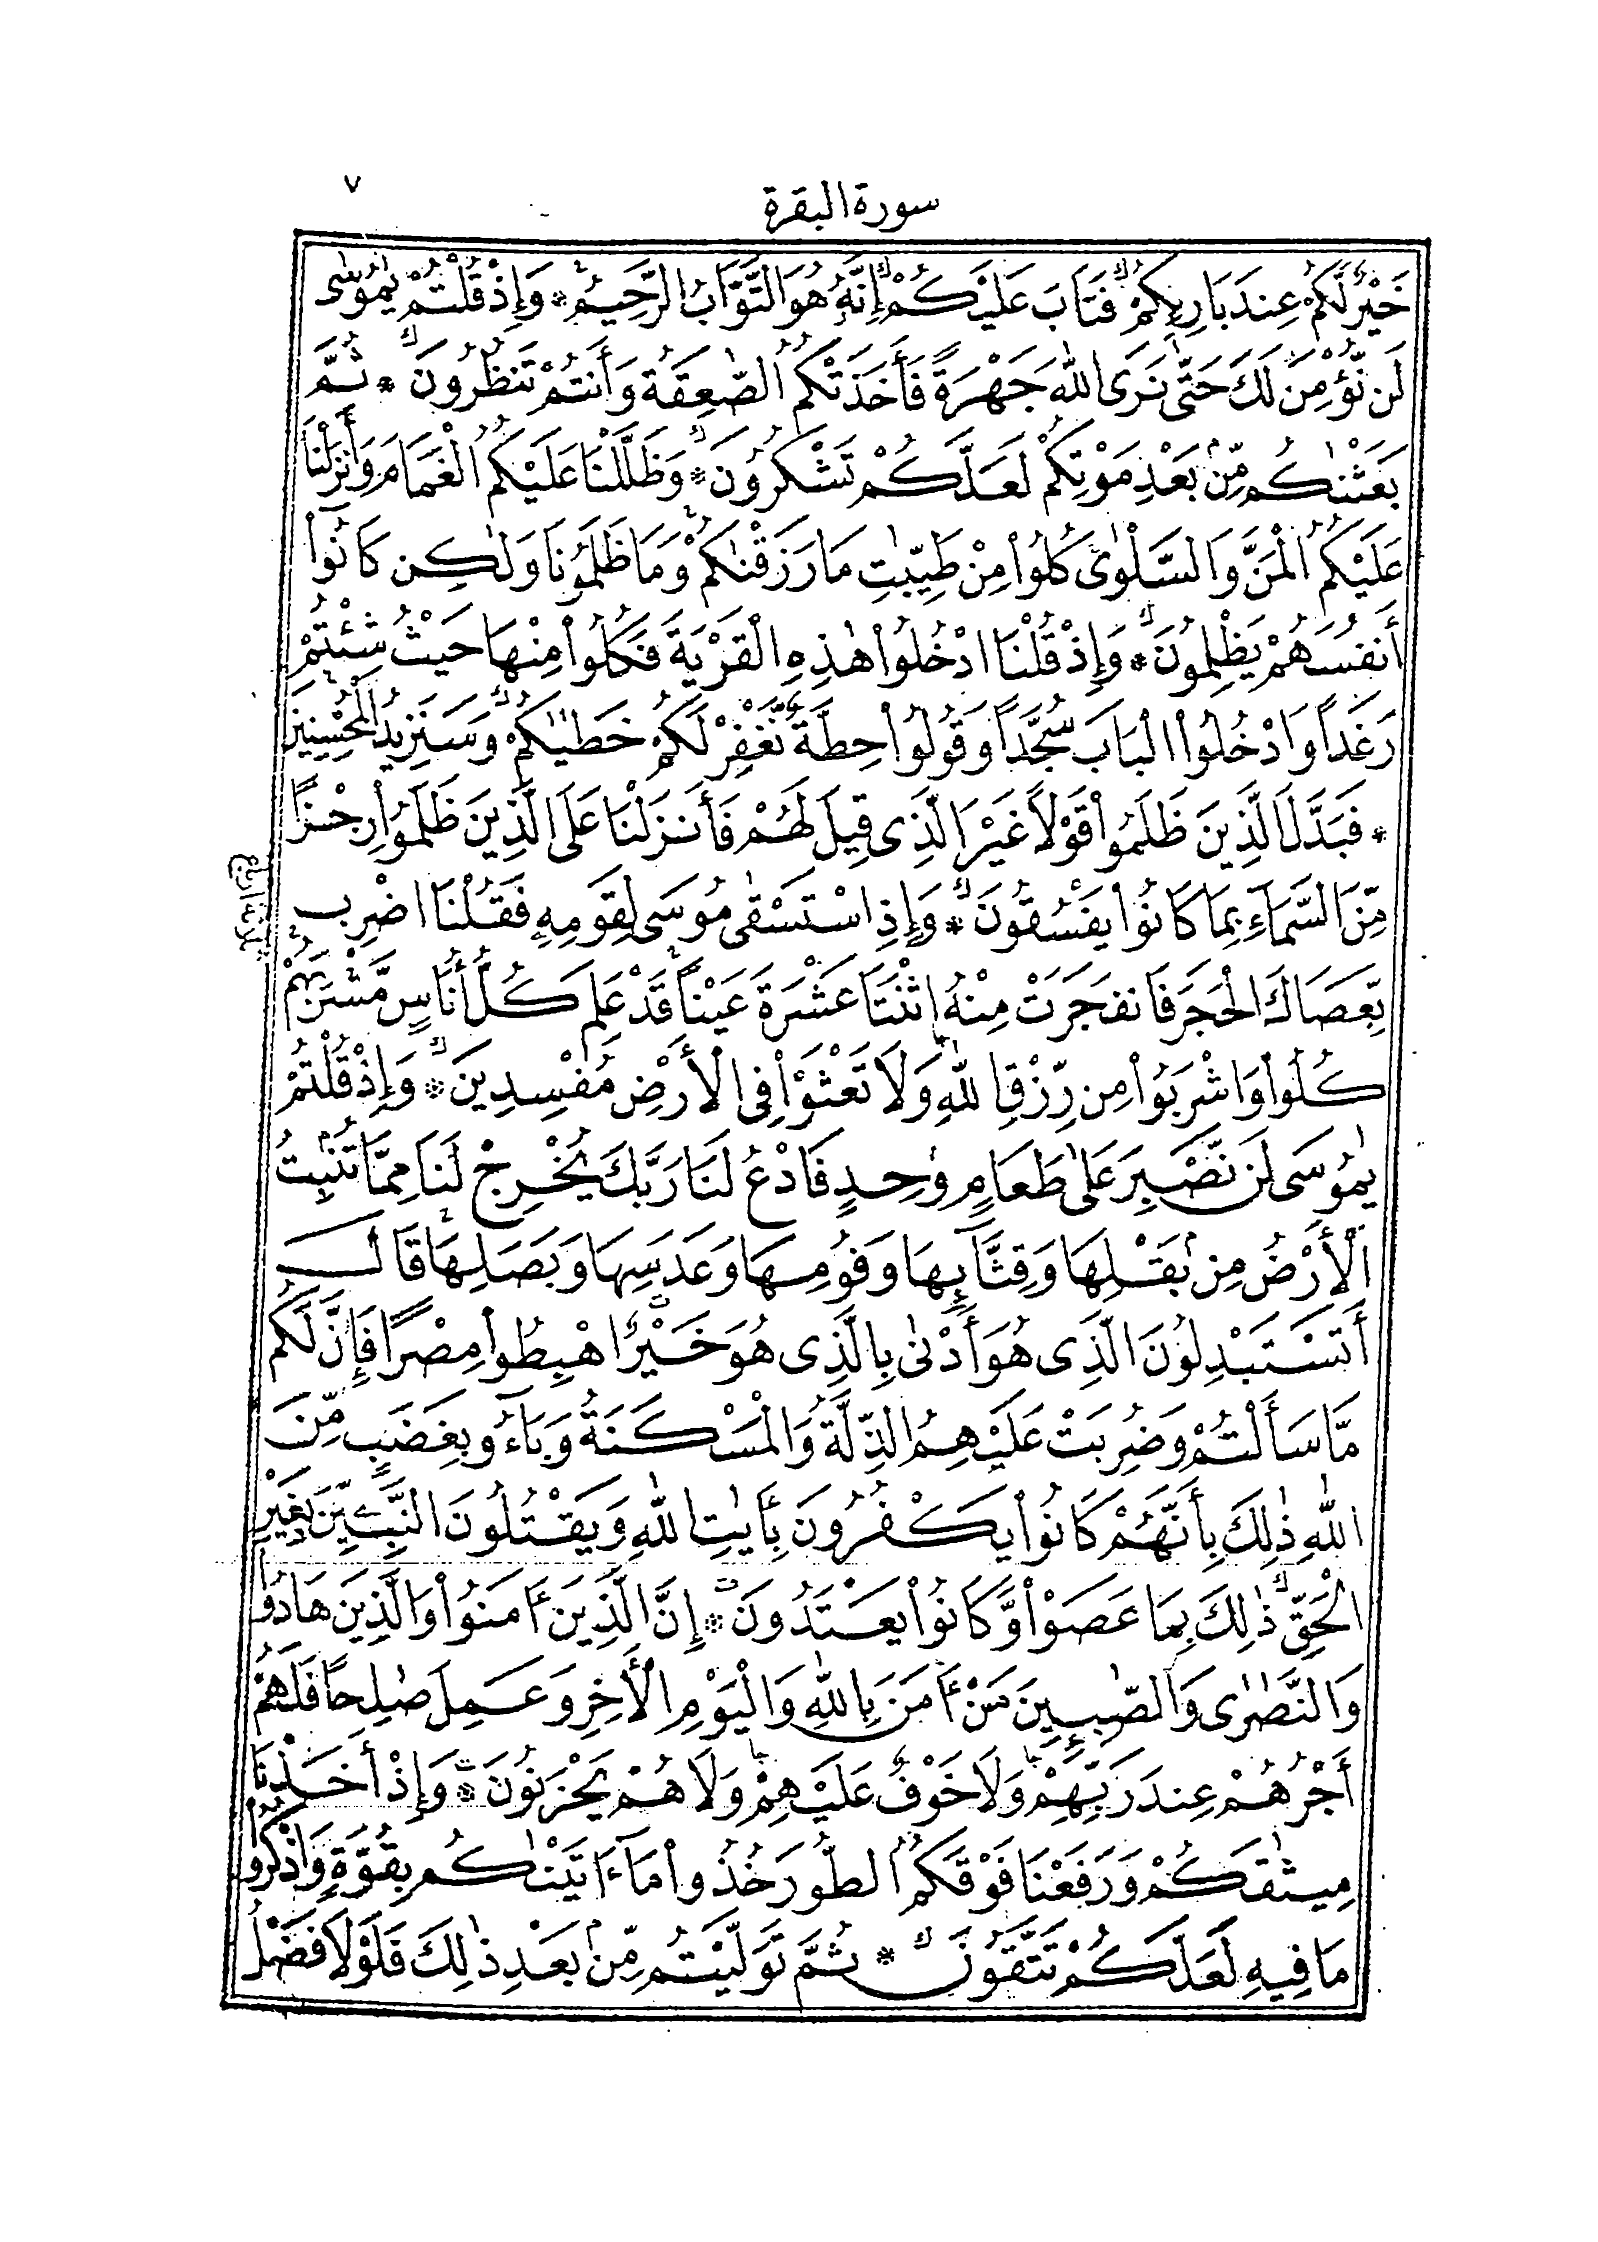 ٧
سورة البقرة
خَيْرٌ لَّكُمْ عِندَ بَارِئِكُمْ فَتَابَ عَلَيْكُمْ إِنَّهُ هُوَ التَّوَّابُ الرَّحِيمُ * وَإِذْ قُلْتُمْ يٰمُوسٰى
لَن نُّؤْمِنَ لَكَ حَتّٰى نَرَى اللّٰهَ جَهْرَةً فَأَخَذَتْكُمُ الصّٰعِقَةُ وَأَنتُمْ تَنظُرُونَ * ثُمَّ
بَعَثْنٰكُم مِّنۢ بَعْدِ مَوْتِكُمْ لَعَلَّكُمْ تَشْكُرُونَ * وَظَلَّلْنَا عَلَيْكُمُ الْغَمَامَ وَأَنزَلْنَا
عَلَيْكُمُ الْمَنَّ وَالسَّلْوٰى كُلُوا۟ مِنْ طَيِّبٰتِ مَا رَزَقْنٰكُمْ وَمَا ظَلَمُونَا وَلٰكِن كَانُوٓا۟
أَنفُسَهُمْ يَظْلِمُونَ * وَإِذْ قُلْنَا ادْخُلُوا۟ هٰذِهِ الْقَرْيَةَ فَكُلُوا۟ مِنْهَا حَيْثُ شِئْتُمْ
رَغَدًا وَادْخُلُوا۟ الْبَابَ سُجَّدًا وَقُولُوا۟ حِطَّةٌ نَّغْفِرْ لَكُمْ خَطٰيٰكُمْ وَسَنَزِيدُ الْمُحْسِنِينَ
* فَبَدَّلَ الَّذِينَ ظَلَمُوا۟ قَوْلًا غَيْرَ الَّذِى قِيلَ لَهُمْ فَأَنزَلْنَا عَلَى الَّذِينَ ظَلَمُوا۟ رِجْزًا
مِّنَ السَّمَآءِ بِمَا كَانُوا۟ يَفْسُقُونَ * وَإِذِ اسْتَسْقٰى مُوسٰى لِقَوْمِهِ فَقُلْنَا اضْرِب
بِّعَصَاكَ الْحَجَرَ فَانفَجَرَتْ مِنْهُ اثْنَتَا عَشْرَةَ عَيْنًا قَدْ عَلِمَ كُلُّ أُنَاسٍ مَّشْرَبَهُمْ
كُلُوا۟ وَاشْرَبُوا۟ مِن رِّزْقِ اللّٰهِ وَلَا تَعْثَوْا۟ فِى الْأَرْضِ مُفْسِدِينَ * وَإِذْ قُلْتُمْ
يٰمُوسَى لَن نَّصْبِرَ عَلٰى طَعَامٍ وٰحِدٍ فَادْعُ لَنَا رَبَّكَ يُخْرِجْ لَنَا مِمَّا تُنۢبِتُ
الْأَرْضُ مِنۢ بَقْلِهَا وَقِثَّآئِهَا وَفُومِهَا وَعَدَسِهَا وَبَصَلِهَا قَالَ
أَتَسْتَبْدِلُونَ الَّذِى هُوَ أَدْنٰى بِالَّذِى هُوَ خَيْرٌ اهْبِطُوا۟ مِصْرًا فَإِنَّ لَكُم
مَّا سَأَلْتُمْ وَضُرِبَتْ عَلَيْهِمُ الذِّلَّةُ وَالْمَسْكَنَةُ وَبَآءُو بِغَضَبٍ مِّنَ
اللّٰهِ ذٰلِكَ بِأَنَّهُمْ كَانُوا۟ يَكْفُرُونَ بِـَٔايٰتِ اللّٰهِ وَيَقْتُلُونَ النَّبِيِّينَ بِغَيْرِ
الْحَقِّ ذٰلِكَ بِمَا عَصَوْا۟ وَّكَانُوا۟ يَعْتَدُونَ * إِنَّ الَّذِينَ ءَامَنُوا۟ وَالَّذِينَ هَادُوا۟
وَالنَّصٰرٰى وَالصّٰبِـِٔينَ مَنْ ءَامَنَ بِاللّٰهِ وَالْيَوْمِ الْأَخِرِ وَعَمِلَ صٰلِحًا فَلَهُمْ
أَجْرُهُمْ عِندَ رَبِّهِمْ وَلَا خَوْفٌ عَلَيْهِمْ وَلَا هُمْ يَحْزَنُونَ * وَإِذْ أَخَذْنَا
مِيثٰقَكُمْ وَرَفَعْنَا فَوْقَكُمُ الطُّورَ خُذُوا۟ مَآ ءَاتَيْنٰكُم بِقُوَّةٍ وَاذْكُرُوا۟
مَا فِيهِ لَعَلَّكُمْ تَتَّقُونَ * ثُمَّ تَوَلَّيْتُم مِّنۢ بَعْدِ ذٰلِكَ فَلَوْلَا فَضْلُ